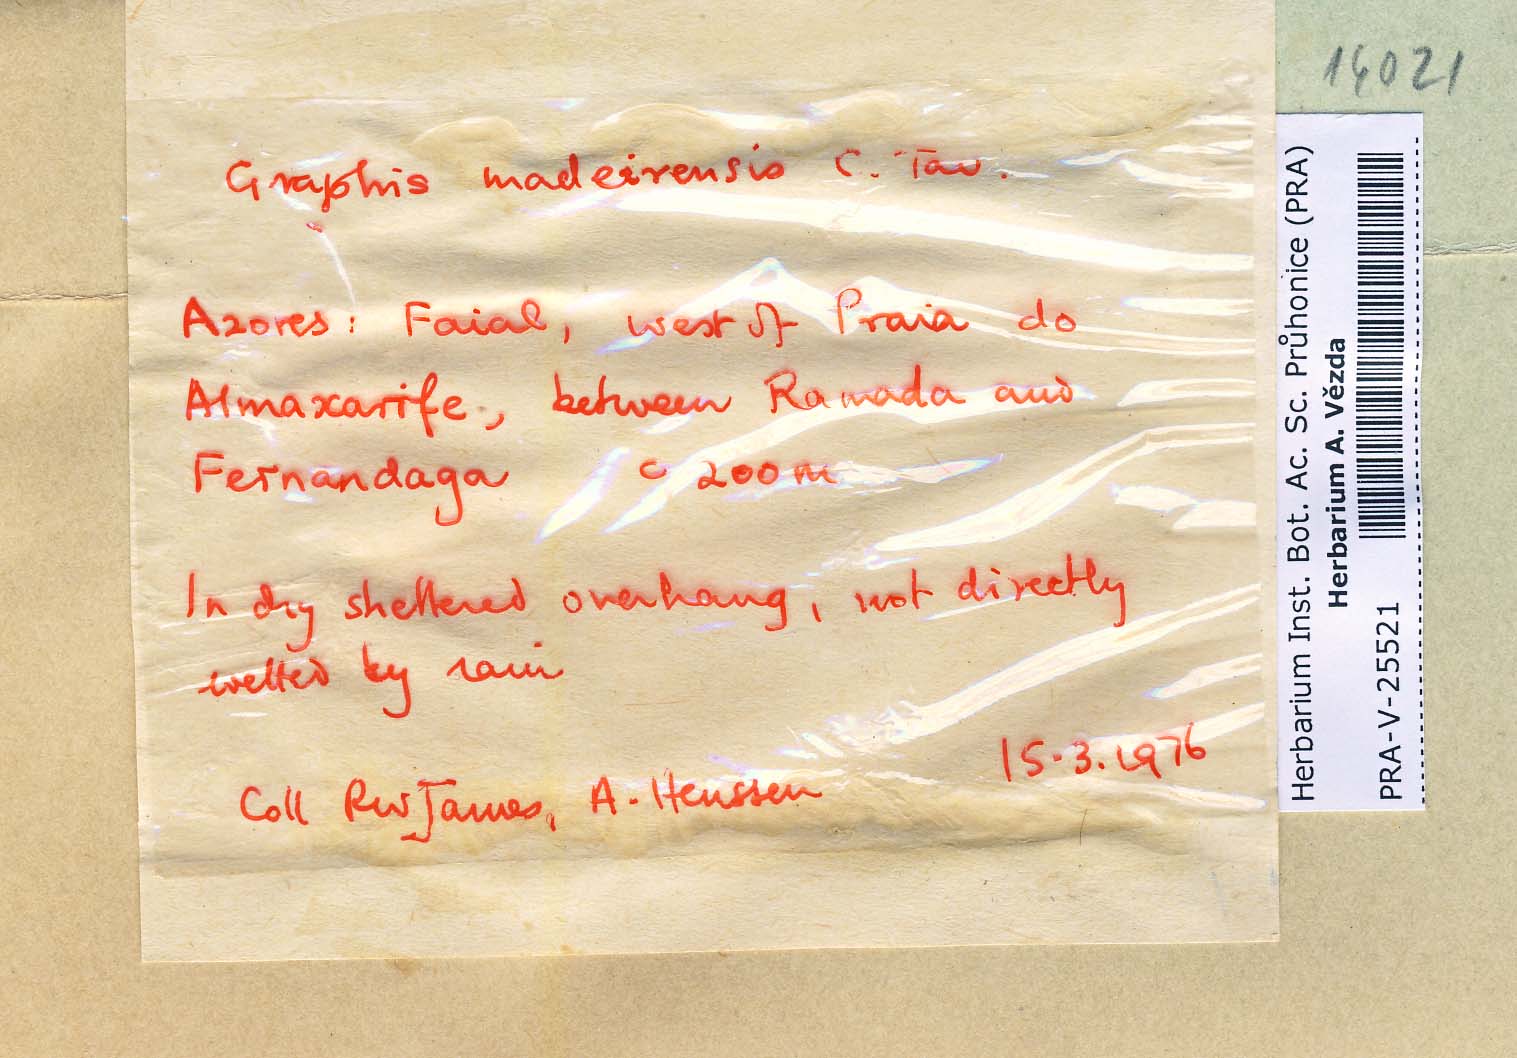 14021
Graphis madeirensis C. Tav.
Azores: Faial, west of Praia do
Almaxarife, between Ramada and
Fernandaga c 200 m
In dry sheltered overhang, not directly
wetted by rain
15.3.1976
Coll RW James, A. Henssen
Herbarium Inst. Bot. Ac. Sc. Průhonice (PRA)
Herbarium A. Vězda
PRA-V-25521